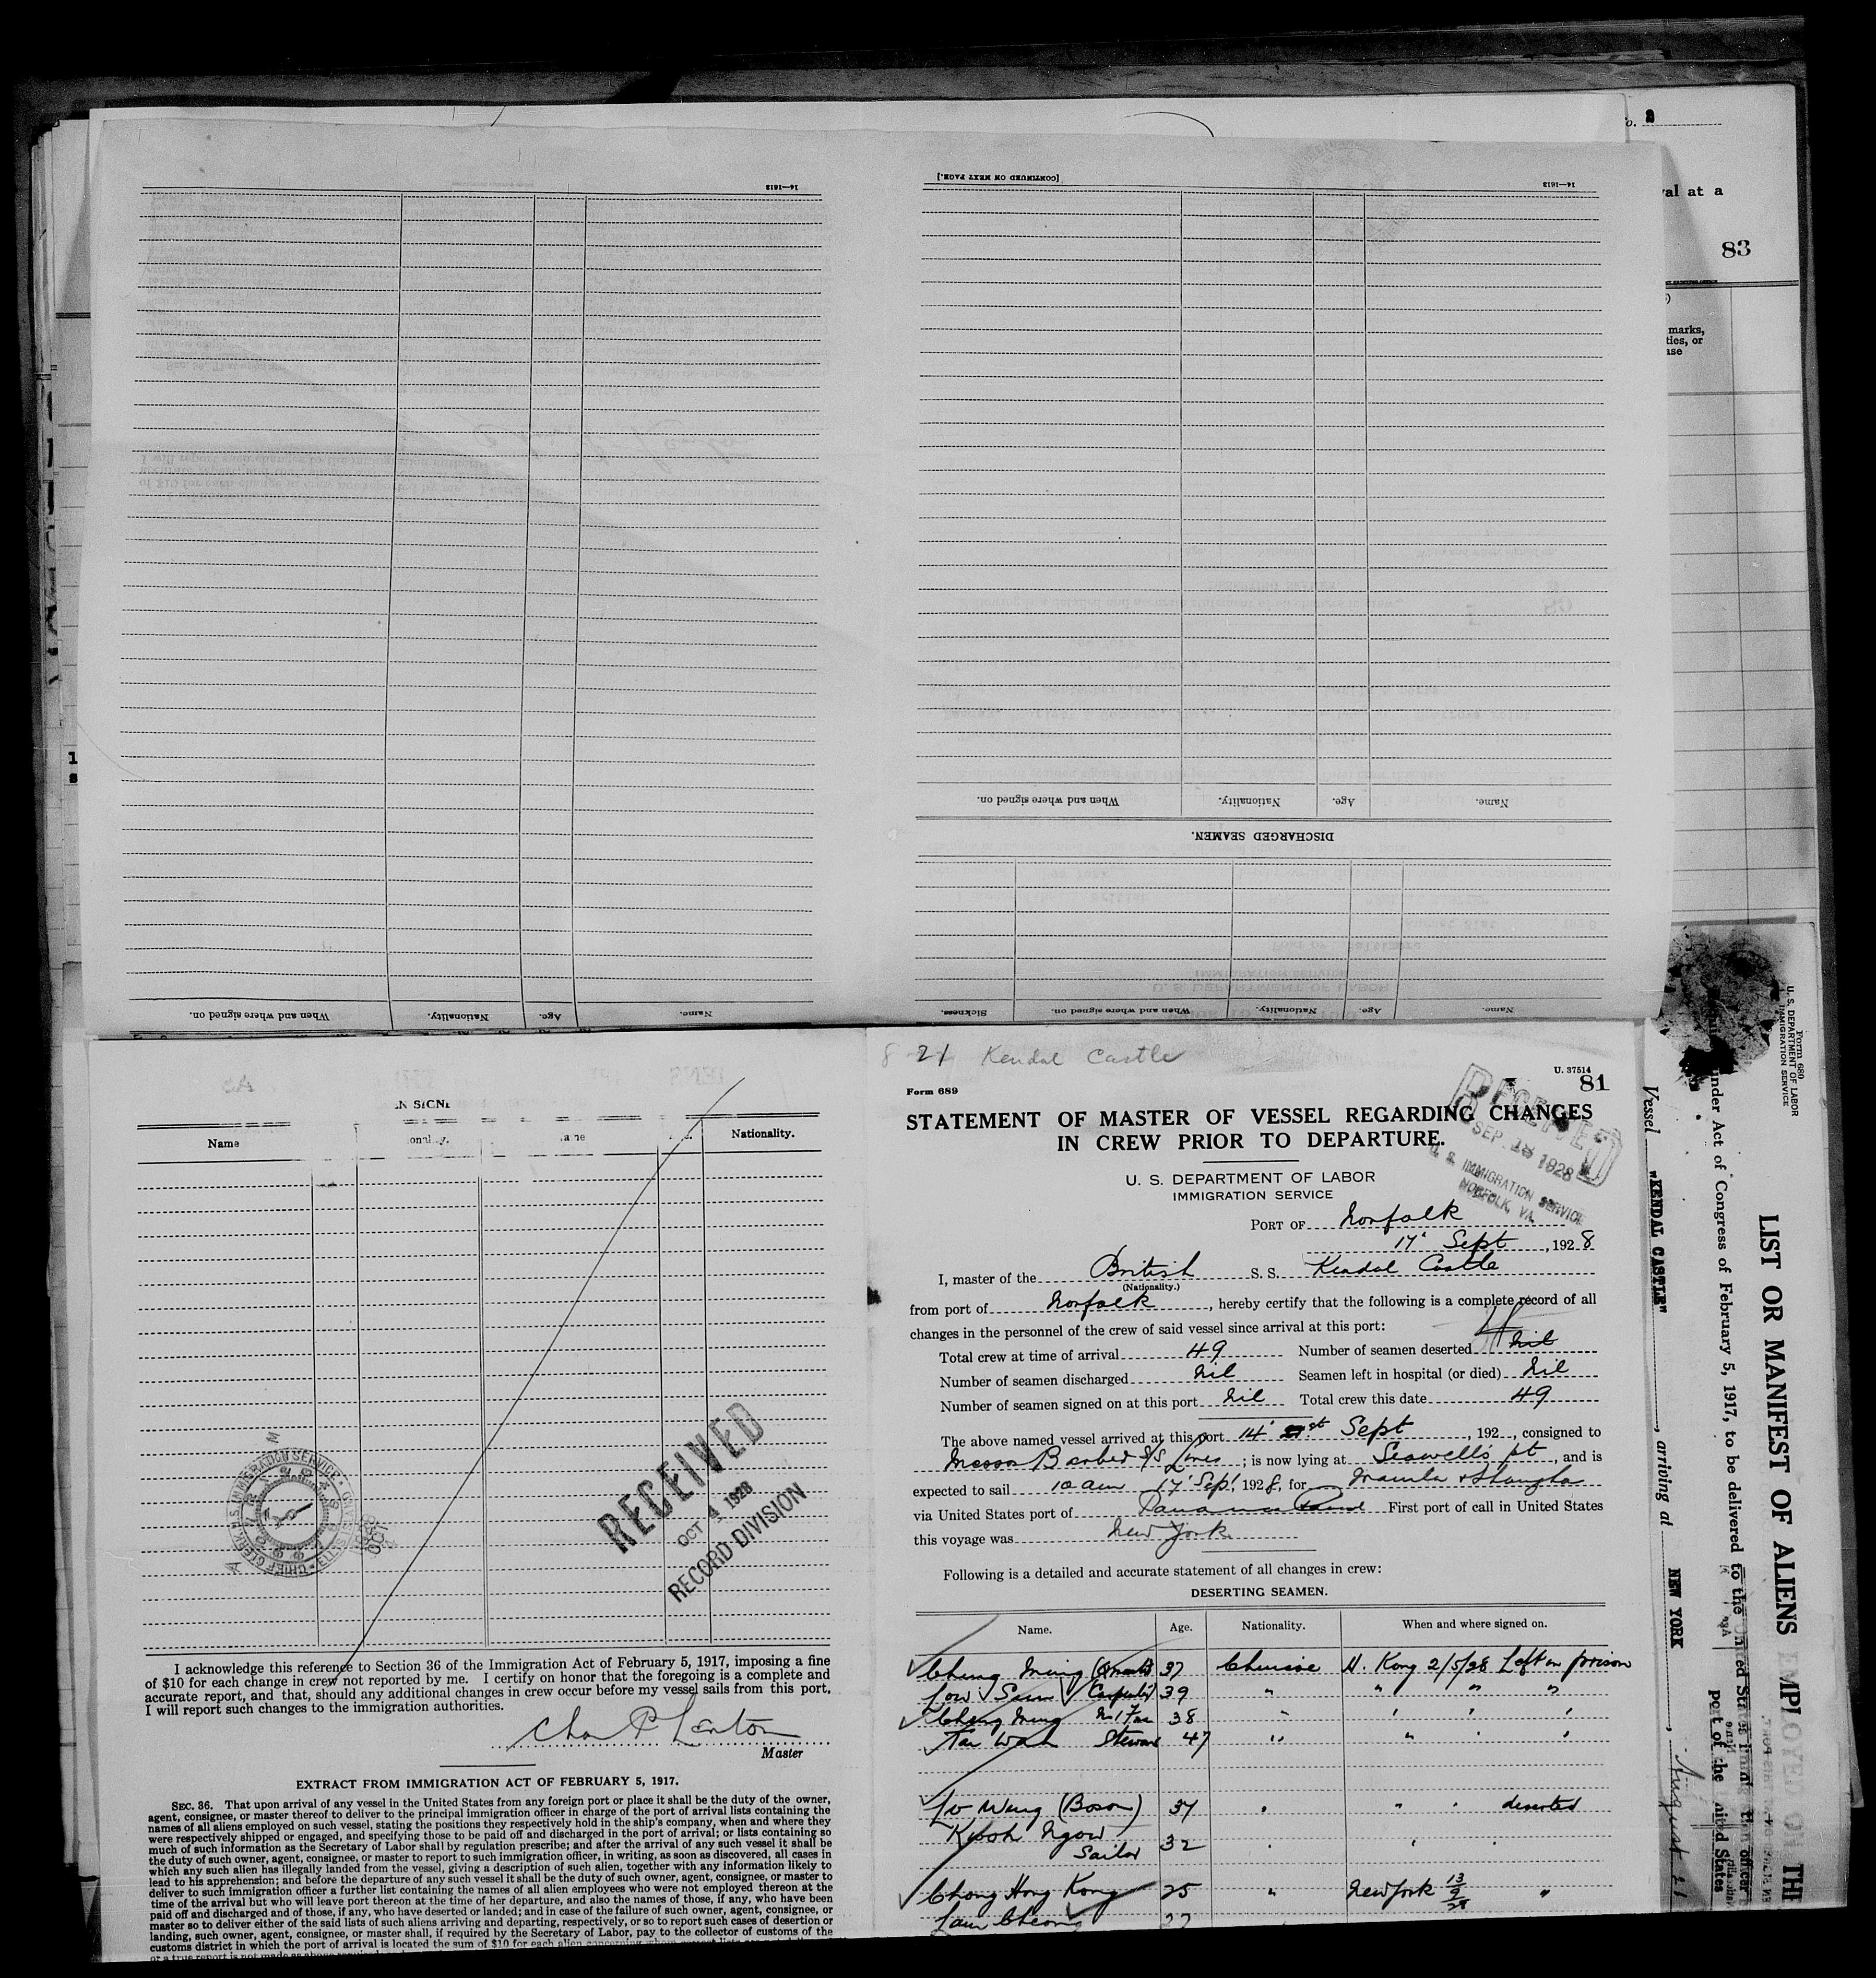 14—1613
[CONTINUED ON NEXT PAGE.]
14—1613
When and where signed on.
Nationality.
Age.
Name.
DISCHARGED SEAMEN.
Sickness.
When and where signed on.
Nationality.
Age.
Name.
When and where signed on.
Nationality.
Age.
Name.
Name
Nationality.
RECEIVED
OCT 4 1928
RECORD DIVISION
I acknowledge this reference to Section 36 of the Immigration Act of February 5, 1917, imposing a fine
of $10 for each change in crew not reported by me. I certify on honor that the foregoing is a complete and
accurate report, and that, should any additional changes in crew occur before my vessel sails from this port,
I will report such changes to the immigration authorities.
Chas P Lenton
Master
EXTRACT FROM IMMIGRATION ACT OF FEBRUARY 5, 1917.
SEC. 36. That upon arrival of any vessel in the United States from any foreign port or place it shall be the duty of the owner,
agent, consignee, or master thereof to deliver to the principal immigration officer in charge of the port of arrival lists containing the
names of all aliens employed on such vessel, stating the positions they respectively hold in the ship's company, when and where they
were respectively shipped or engaged, and specifying those to be paid off and discharged in the port of arrival; or lists containing so
much of such information as the Secretary of Labor shall by regulation prescribe; and after the arrival of any such vessel it shall be
the duty of such owner, agent, consignee, or master to report to such immigration officer, in writing, as soon as discovered, all cases in
which any such alien has illegally landed from the vessel, giving a description of such alien, together with any information likely to
lead to his apprehension; and before the departure of any such vessel it shall be the duty of such owner, agent, consignee, or master to
deliver to such immigration officer a further list containing the names of all alien employees who were not employed thereon at the
time of the arrival but who will leave port thereon at the time of her departure, and also the names of those, if any, who have been
paid off and discharged and of those, if any, who have deserted or landed; and in case of the failure of such owner, agent, consignee, or
master so to deliver either of the said lists of such aliens arriving and departing, respectively, or so to report such cases of desertion or
landing, such owner, agent, consignee, or master shall, if required by the Secretary of Labor, pay to the collector of customs of the
customs district in which the port of arrival is located the sum of $10 for each alien concerning
21 Kendal Castle
U. 37514
Form 689
81
STATEMENT OF MASTER OF VESSEL REGARDING CHANGES
IN CREW PRIOR TO DEPARTURE.
RECEIVED
SEP 18 1928
U. S. IMMIGRATION SERVICE
NORFOLK, VA.
U. S. DEPARTMENT OF LABOR
IMMIGRATION SERVICE
PORT OF Norfolk
17 Sept, 1928
I, master of the British S. S. Kendal Castle
(Nationality.)
from port of Norfolk, hereby certify that the following is a complete record of all
changes in the personnel of the crew of said vessel since arrival at this port:
Total crew at time of arrival 49 Number of seamen deserted nil
Number of seamen discharged nil Seamen left in hospital (or died) nil
Number of seamen signed on at this port nil Total crew this date 49
The above named vessel arrived at this port 14 Sept, 192 , consigned to
Messrs Barber S/S Lines; is now lying at Seawells pt, and is
expected to sail 10 am 17 Sep, 1928, for Manila & Shangha
via United States port of Panama First port of call in United States
this voyage was New York
Following is a detailed and accurate statement of all changes in crew:
DESERTING SEAMEN.
Name. Age. Nationality. When and where signed on.
Cheng Ming 37 Chinese H. Kong 2/5/28 Left in prison
Low Sum 39 " " " "
Cheng Ming 38
Tai Wah Steward 47
Lo Weng (Boson) 37 deserted
Kwoh Ngow
Sailor 32
Chong Hong Kong 25 " New York 13/9/28 "
Lam Cheong 27
o. 2
val at a
83
marks,
ties, or
ase
Form 680
U. S. DEPARTMENT OF LABOR
IMMIGRATION SERVICE
LIST OR MANIFEST OF ALIENS EMPLOYED ON TH
under Act of Congress of February 5, 1917, to be delivered to the United States
port of the United States
Vessel "KENDAL CASTLE", arriving at NEW YORK, August 21